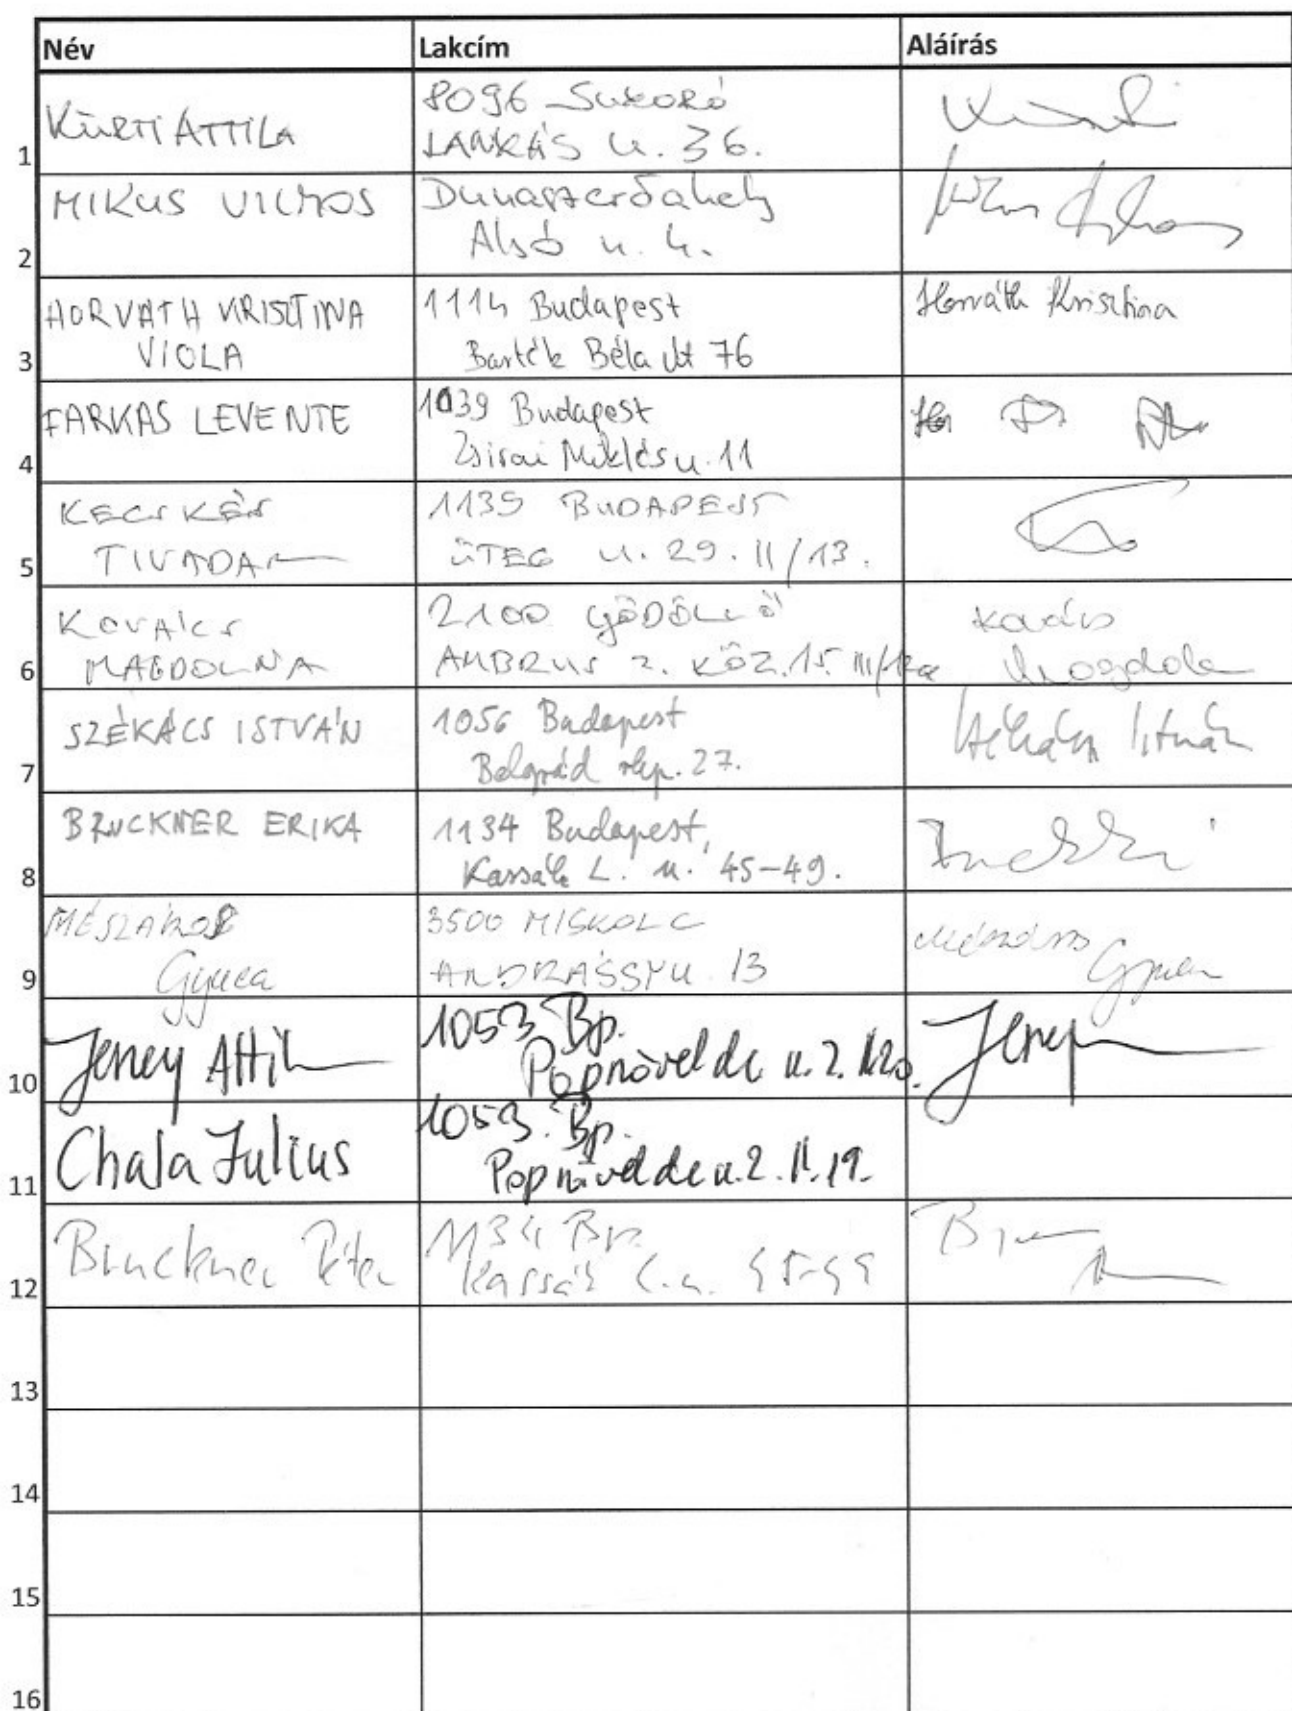 Név Lakcím Aláírás
KÜRTI ATTILA
8096 SUKORÓ
LANKÁS u. 36.
1
MIKUS VILMOS
Dunaszerdahely
Alsó u. 4.
2
HORVATH KRISZTINA
VIOLA
1114 Budapest
Bartók Béla út 76
Horváth Krisztina
3
FARKAS LEVENTE
1039 Budapest
Zsirai Miklós u. 11
4
KECSKÉS
TIVADAR
1139 BUDAPEST
ÜTEG u. 29. II/13.
5
KOVÁCS
MAGDOLNA
2100 GÖDÖLLŐ
AMBRUS Z. KÖZ. 15. III/
Kovács
Magdolna
6
SZÉKÁCS ISTVÁN
1056 Budapest
Belgrád rkp. 27.
Székács István
7
BRUCKNER ERIKA
1134 Budapest,
Kassák L. u. 45-49.
8
MÉSZÁROS
Gyula
3500 MISKOLC
ANDRÁSSY U. 13
Mészáros
Gyula
9
Jeney Attila
1053 Bp.
Papnövelde u. 2.
Jeney
10
Chala Julius
1053. Bp.
Papnövelde u. 2. II. 19.
11
Bruckner Péter
1134 Bp.
Kassák L. u. 45-49
12
13
14
15
16